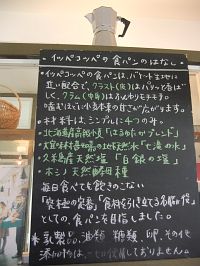 イッペコッペの食パンのはなし
・イッペコッペの食パンは、バゲット生地に
近い配合で、クラスト(皮)はパリッと香ばし
く、クラム(中身)はふんわりモチモチ。
噛むほどに小麦本来の甘さが広がります。
・材料は、シンプルに4つのみ。
・北海道産高級小麦「はるゆたかブレンド」
の地下天然水「七滝の水」
・久米島天然塩「白銀の塩」
・ホシノ天然酵母種
毎日食べても飽きのこない
「究極の定番」「食材を引き立てる名脇役」
としての、食パンを目指しました。
*乳製品、油脂、糖類、卵、その他
添加物は、使用しておりません。